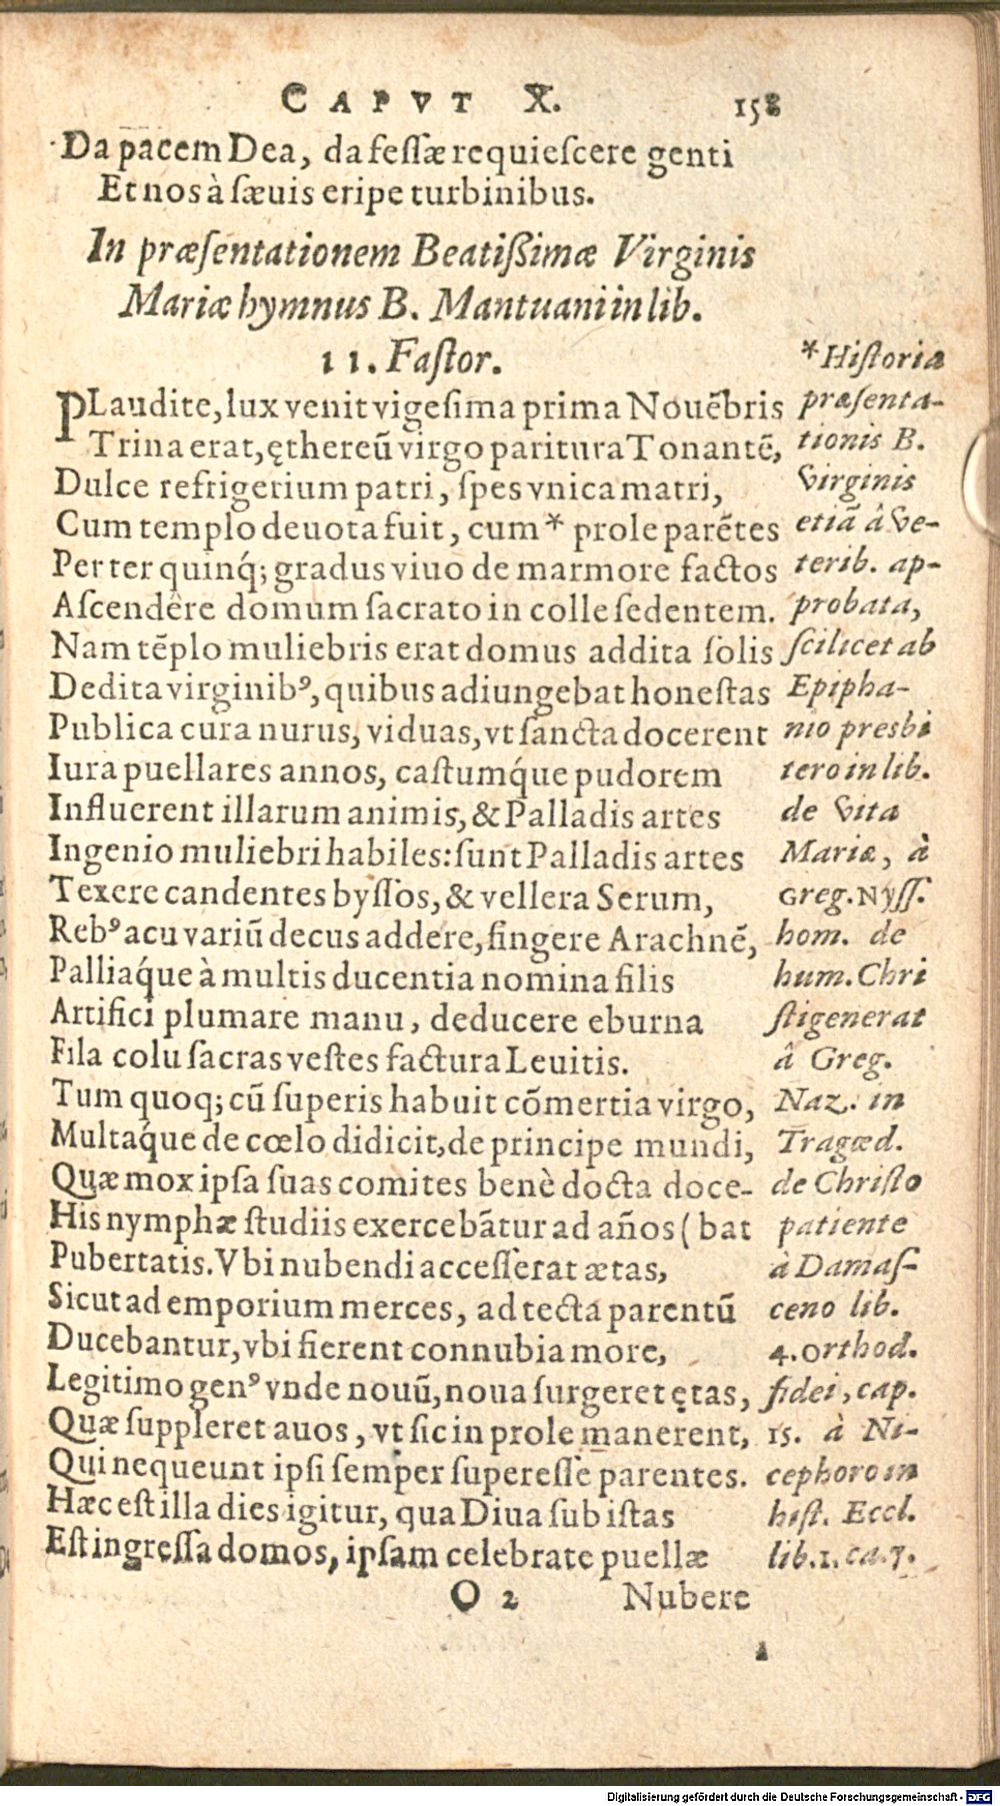 CAPVT X. 158
Da pacem Dea, da fessæ requiescere genti
Et nos à sæuis eripe turbinibus.
In præsentationem Beatißimæ Virginis
Mariæ hymnus B. Mantuani in lib.
11. Fastor.
PLaudite, lux venit vigesima prima Nouẽbris
Trina erat, ęthereũ virgo paritura Tonantẽ,
Dulce refrigerium patri, spes vnica matri,
Cum templo deuota fuit, cum * prole parẽtes
Per ter quinq́; gradus viuo de marmore factos
Ascendêre domum sacrato in colle sedentem.
Nam tẽplo muliebris erat domus addita solis
Dedita virginibꝰ, quibus adiungebat honestas
Publica cura nurus, viduas, vt sancta docerent
Iura puellares annos, castumq́ue pudorem
Influerent illarum animis, & Palladis artes
Ingenio muliebri habiles: sunt Palladis artes
Texere candentes byssos, & vellera Serum,
Rebꝰ acu variũ decus addere, fingere Arachnẽ,
Palliaq́ue à multis ducentia nomina filis
Artifici plumare manu, deducere eburna
Fila colu sacras vestes factura Leuitis.
Tum quoq; cũ superis habuit cõmertia virgo,
Multaq́ue de cœlo didicit, de principe mundi,
Quæ mox ipsa suas comites benè docta doce-
His nymphæ studiis exercebãtur ad años (bat
Pubertatis. Vbi nubendi accesserat ætas,
Sicut ad emporium merces, ad tecta parentũ
Ducebantur, vbi fierent connubia more,
Legitimo genꝰ vnde nouũ, noua surgeret ętas,
Quæ suppleret auos, vt sic in prole manerent,
Qui nequeunt ipsi semper superesse parentes.
Hæc est illa dies igitur, qua Diua sub istas
Est ingressa domos, ipsam celebrate puellæ
O 2 Nubere
* Historia
præsenta-
tionis B.
Virginis
etiã â ve-
terib. ap-
probata,
scilicet ab
Epipha-
nio presbi
tero in lib.
de vita
Mariæ, à
Greg. Nyss.
hom. de
hum. Chri
sti generat
â Greg.
Naz. in
Tragœd.
de Christo
patiente
à Damas-
ceno lib.
4. orthod.
fidei, cap.
15. à Ni-
cephoro in
hist. Eccl.
lib. 1. ca. 7.
Digitalisierung gefördert durch die Deutsche Forschungsgemeinschaft - DFG